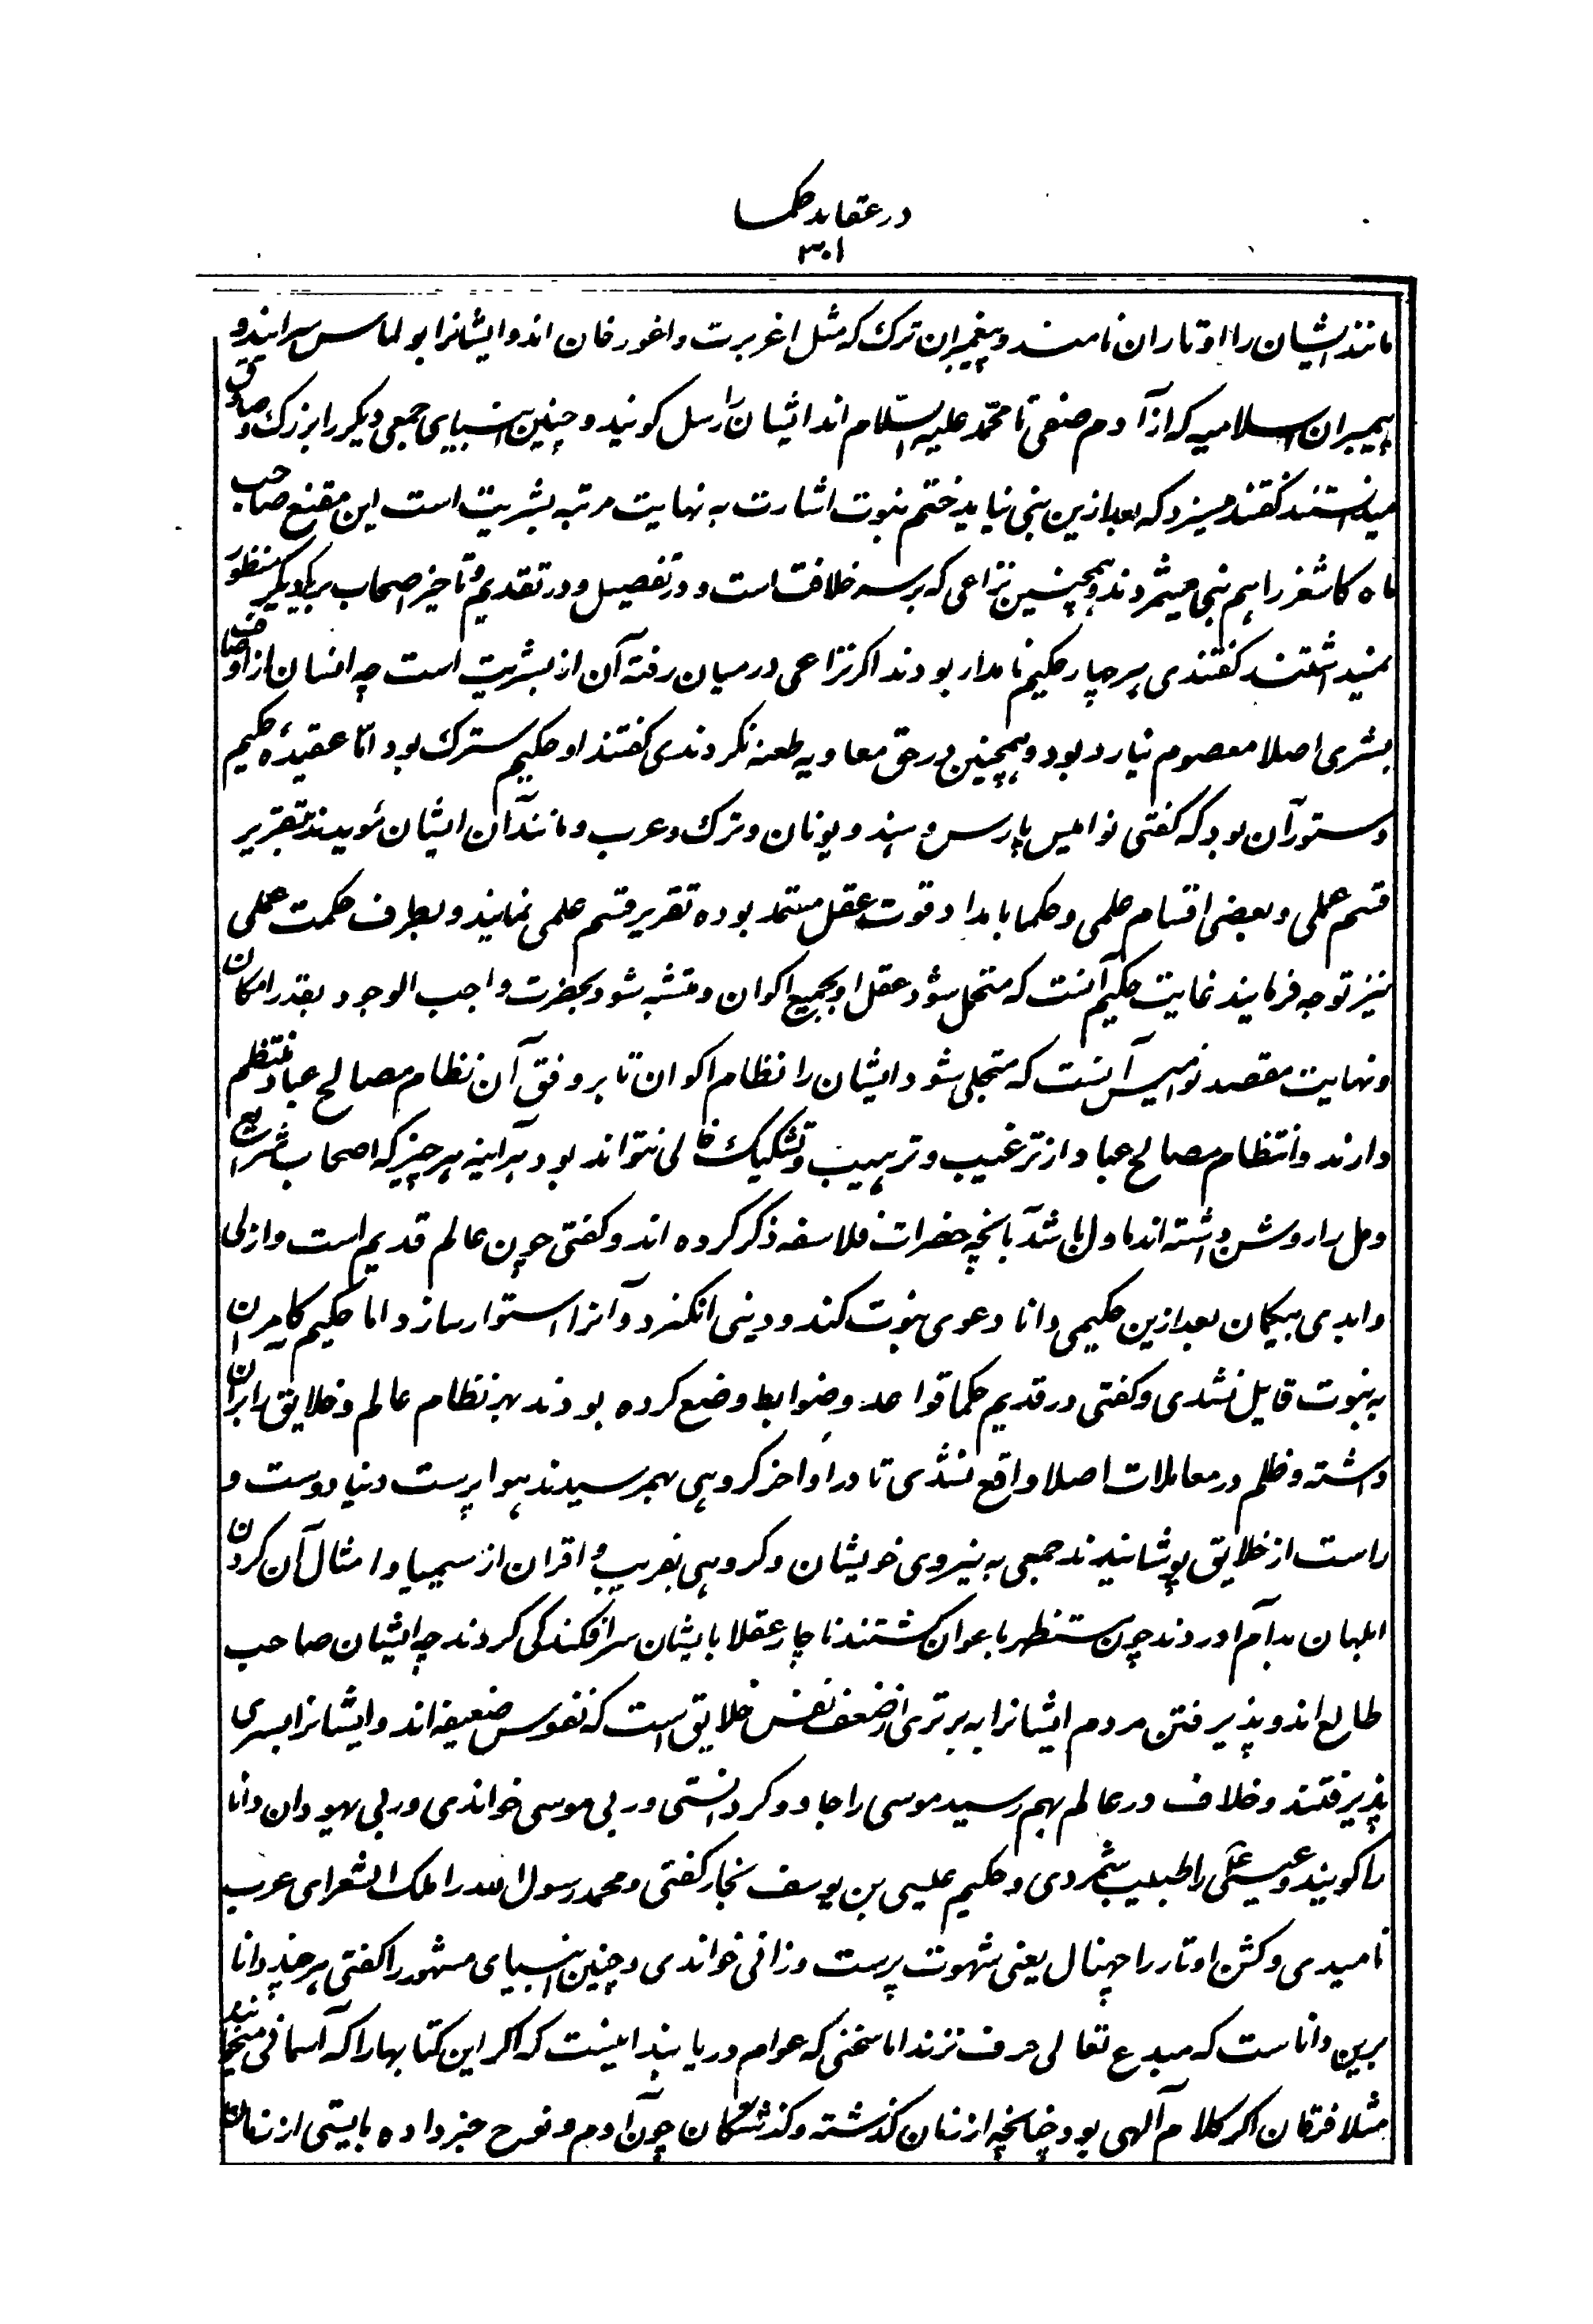 در عقاید حکما
۳۰۱
مانند ایشان را اوتاران نامند و پیغمبران ترک که مثل اغریرت و اغورخان اند و ایشانرا بولماس سرایند و
پیمبران اسلامیه که از آدم صفی تا محمد علیه السّلام اند ایشان را رسل کویند و چنین انبیای جمعی دیکر را بزرک و صادق
میدانستند کفتند میسزد که بعد ازین نبی نیاید ختم نبوت اشارت به نهایت مرتبه بشریت است ابن مقنع صاحب
ماه کاشغر را هم نبی میشمردند و همچنین نزاعی که بر سه خلافت است و در تفصیل و در تقدیم و تاخیر اصحاب بر یکدیکر منظور
نمیداشتند کفتندی هر چار حکیم نامدار بودند اکر نزاعی در میان رفته آن از بشریت است چه انسان از اوصاف
بشری اصلا معصوم نیارد بود و همچنین در حق معاویه طعنه نکردندی کفتند او حکیم سترک بود امّا عقیدهٔ حکیم
دستور آن بود که کفتی نوامیس پارس و هند و یونان و ترک و عرب و مانند آن ایشان مؤیدند بتقریر
قسم عملی و بعضی اقسام علمی و حکما بامداد قوت عقل مستمد بوده تقریر قسم علمی نمایند و بطرف حکمت عملی
نیز توجه فرمایند غایت حکیم آنست که متحلی شود عقل او بجمیع اکوان و متشبه شود بحضرت واجب الوجود بقدر امکان
و نهایت مقصد نوامیس آنست که متجلی شود ایشان را نظام اکوان تا بر وفق آن نظام مصالح عباد منتظم
دارند و انتظام مصالح عباد از ترغیب و ترهیب و تشکیک خالی نتواند بود هر آینه هر چیز که اصحاب شرایع
و ملل را روشن داشته اند ماول باشد بآنچه حضرات فلاسفه ذکر کرده اند و کفتی چون عالم قدیم است و ازلی
و ابدی بیکمان بعد ازین حکیمی دانا دعوی نبوت کند و دینی انکیزد و آنرا استوار سازد اما حکیم کامران
به نبوت قایل نشدی و کفتی در قدیم حکما قواعد و ضوابط وضع کرده بودند بهر نظام عالم و خلایق را بران
داشته و ظلم در معاملات اصلا واقع نشدی تا در اواخر کروهی بهم رسیدند هوا پرست دنیا دوست و
راست از خلایق پوشانیدند جمعی به نیروی خویشان و کروهی بفریب و اقران از سیمیا و امثال آن کردن
ابلهان بدام آوردند چون مستظهر باعوان کشتند ناچار عقلا بایشان سرافکندکی کردند چه ایشان صاحب
طالع اند و پذیرفتن مردم ایشانرا به برتری از ضعف نفس خلایق است که نفوس ضعیفه اند و ایشانرا بسری
پذیرفتند و خلاف در عالم بهم رسید موسی را جادوکر دانستی و ربی موسی خواندی و ربی یهودان دانا
را کویند و عیسی را طبیب شمردی و حکیم عیسی بن یوسف نجار کفتی و محمد رسول الله را ملک الشعرای عرب
نامیدی و کشن اوتار را چهنال یعنی شهوت پرست و زانی خواندی و چنین انبیای مشهور را کفتی هر چند دانا
برین داناست که مبدع تعالی حرف نزند اما سخنی که عوام دریابند اینست که اکر این کتابها را که آسمانی میخوانند
مثلا فرقان اکر کلام آلهی بود چنانچه از زمان کذشته و کذشتکان چون آدم و نوح خبر داده بایستی از زمان